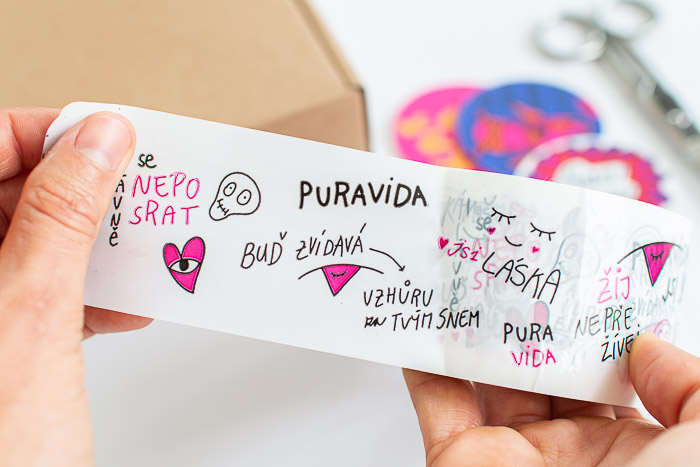 se
NEPO
SRAT
PURAVIDA
BUĎ ZVÍDAVÁ
VZHŮRU
ZA TVÝM SNEM
jsi
LÁSKA
PURA
VIDA
ŽIJ
NEPŘE
ŽÍVEJ